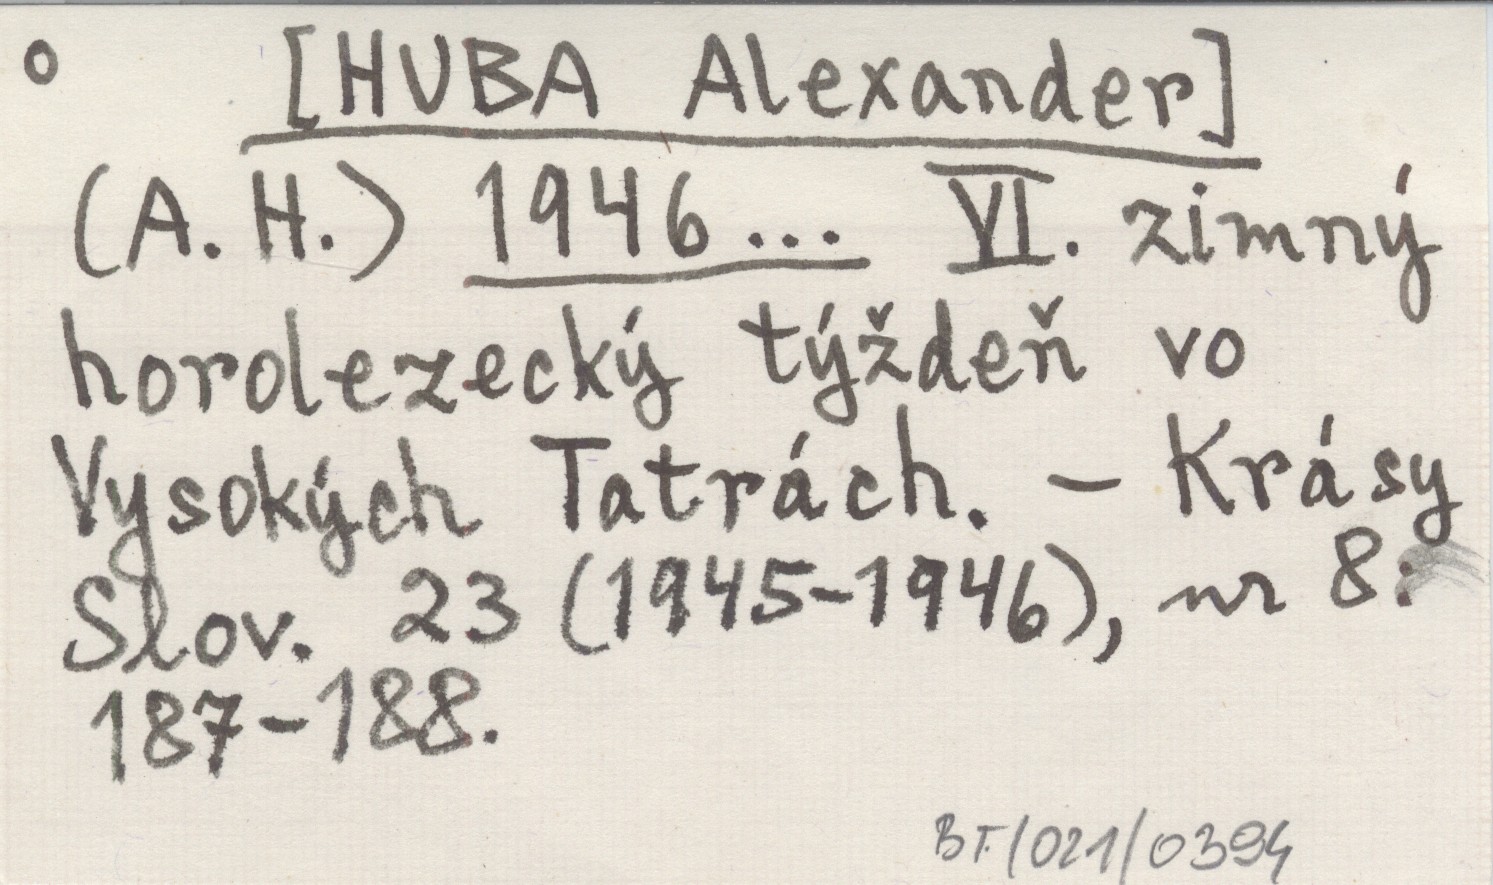 o [HUBA Alexander]
(A. H.) 1946... VI. zimný
horolezecký týždeň vo
Vysokých Tatrách. – Krásy
Slov. 23 (1945-1946), nr 8:
187-188.
BT/021/0394